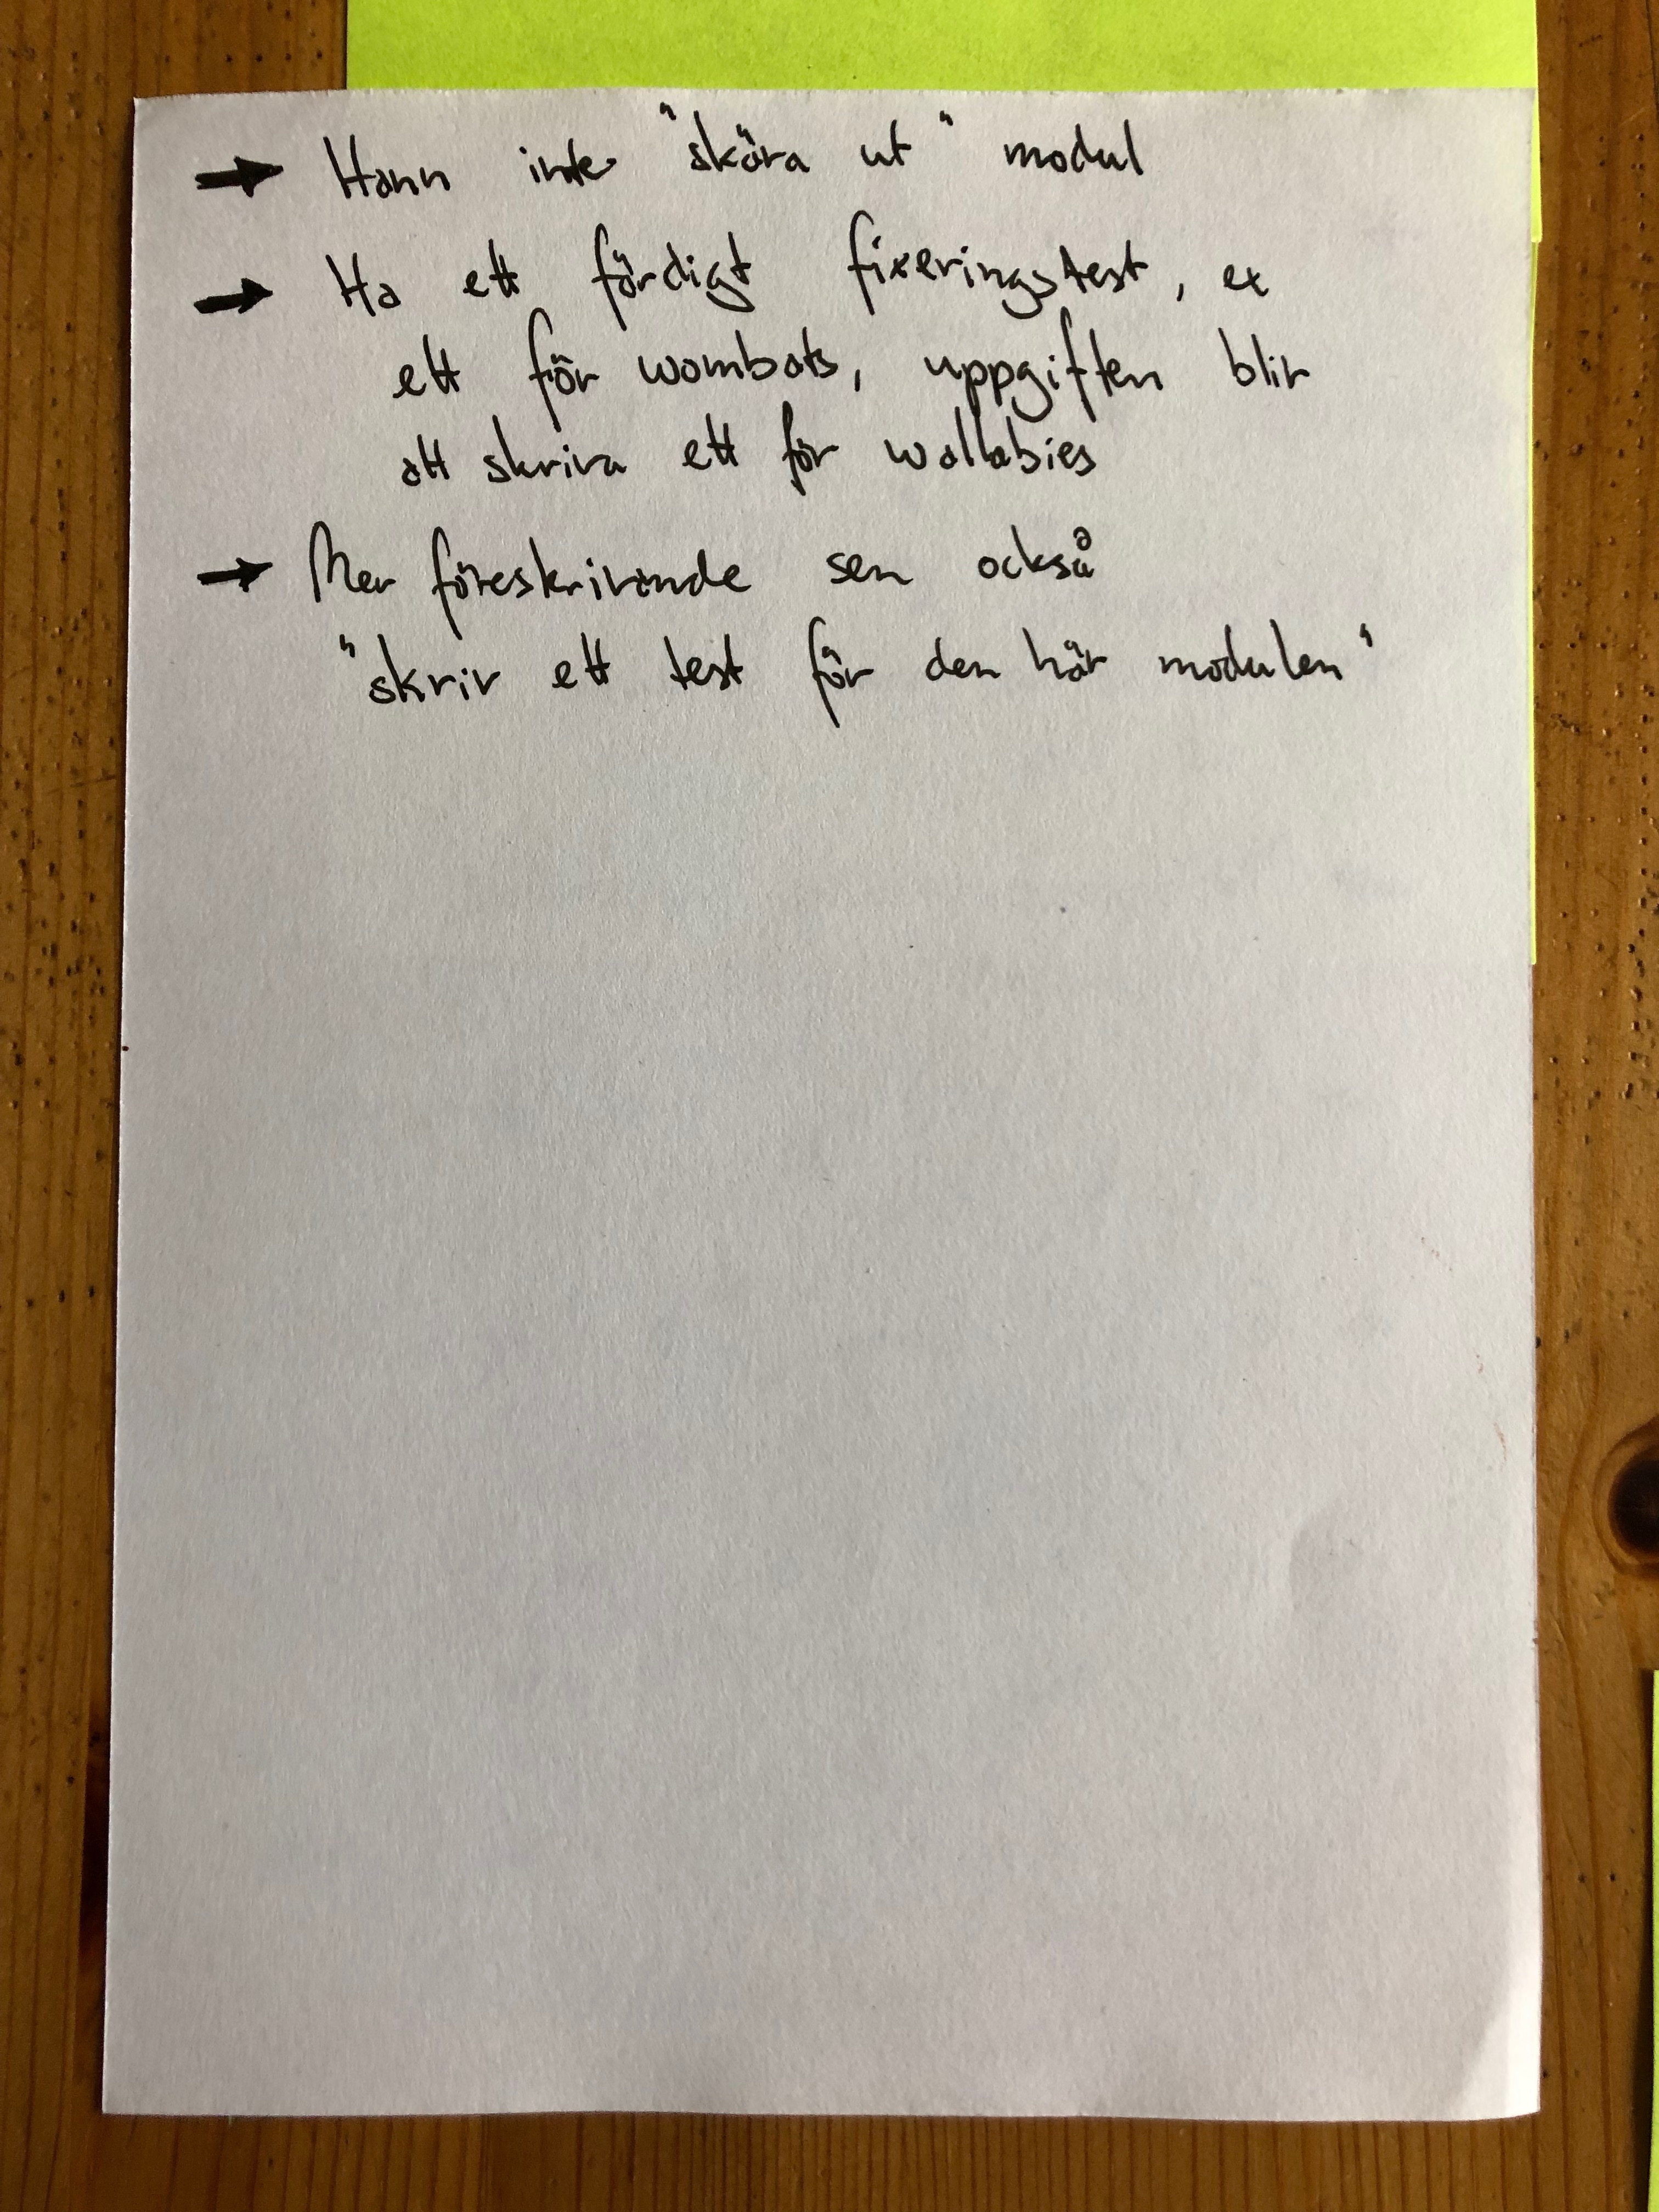 → Hann inte "skära ut" modul
→ Ha ett färdigt fixeringstest, ex
ett för wombats, uppgiften blir
att skriva ett för wallabies
→ Mer föreskrivande sen också
"skriv ett test för den här modulen"